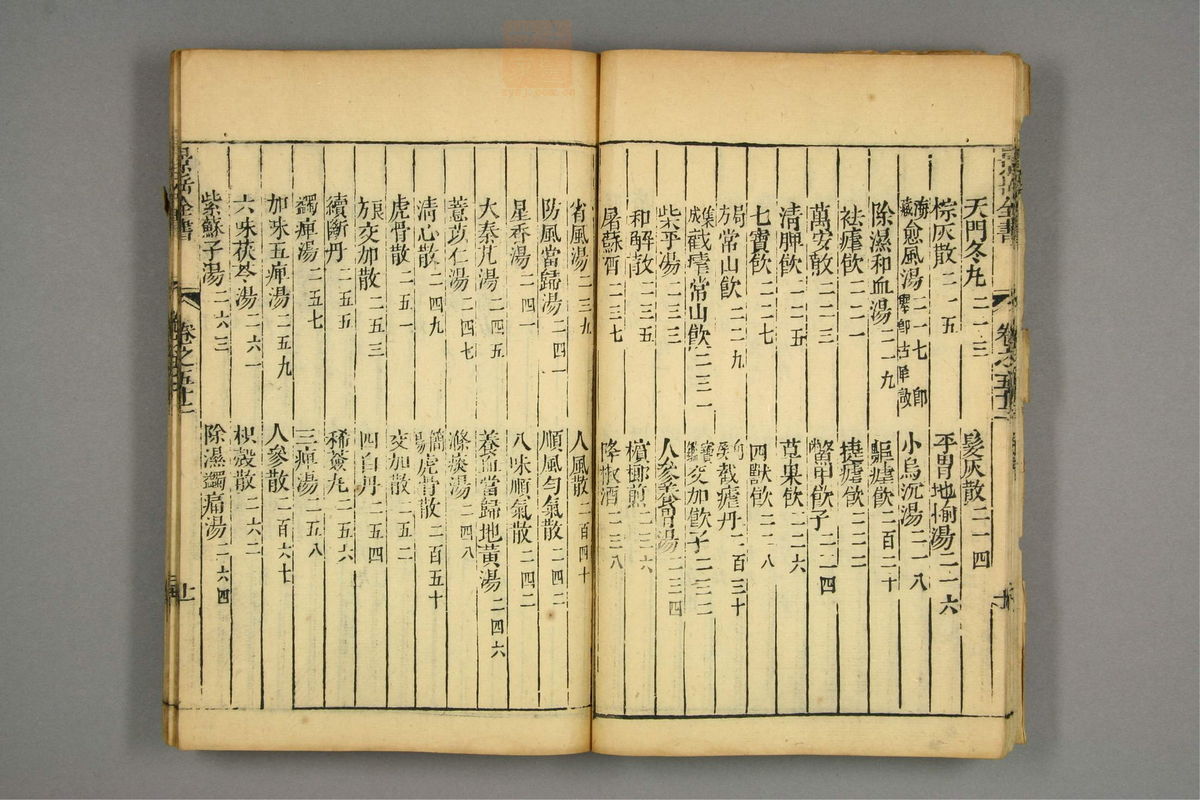 景岳全書
卷之五十二
天門冬丸二一三
髮灰散二一四
棕灰散二一五
平胃地榆湯二一六
小烏沉湯二一八
除濕和血湯二一九
驅瘧飲二百二十
祛瘧飲二二一
捷瘧飲二二二
萬安散二二三
鱉甲飲子二二四
清脾飲二二五
草果飲二二六
七寶飲二二七
四獸飲二二八
局方常山飲二二九
截瘧丹二百三十
集成截瘧常山飲二三一
交加飲子二三二
柴平湯二三三
人參養胃湯二三四
和解散二三五
檳榔煎二三六
屠蘇酒二三七
降椒酒二三八
省風湯二三九
人參散二百四十
防風當歸湯二四一
順風勻氣散二四二
星香湯二四一
八味順氣散二四二
大秦艽湯二四五
養血當歸地黃湯二四六
薏苡仁湯二四七
滌痰湯二四八
清心散二四九
虎骨散二百五十
虎骨散二五一
交加散二五二
交加散二五三
四白丹二五四
續斷丹二五五
稀薟丸二五六
蠲痺湯二五七
三痺湯二五八
加味五痺湯二五九
人參散二百六十
六味茯苓湯二六一
枳殼散二六二
紫蘇子湯二六三
除濕蠲痛湯二六四
景岳全書
卷之五十二